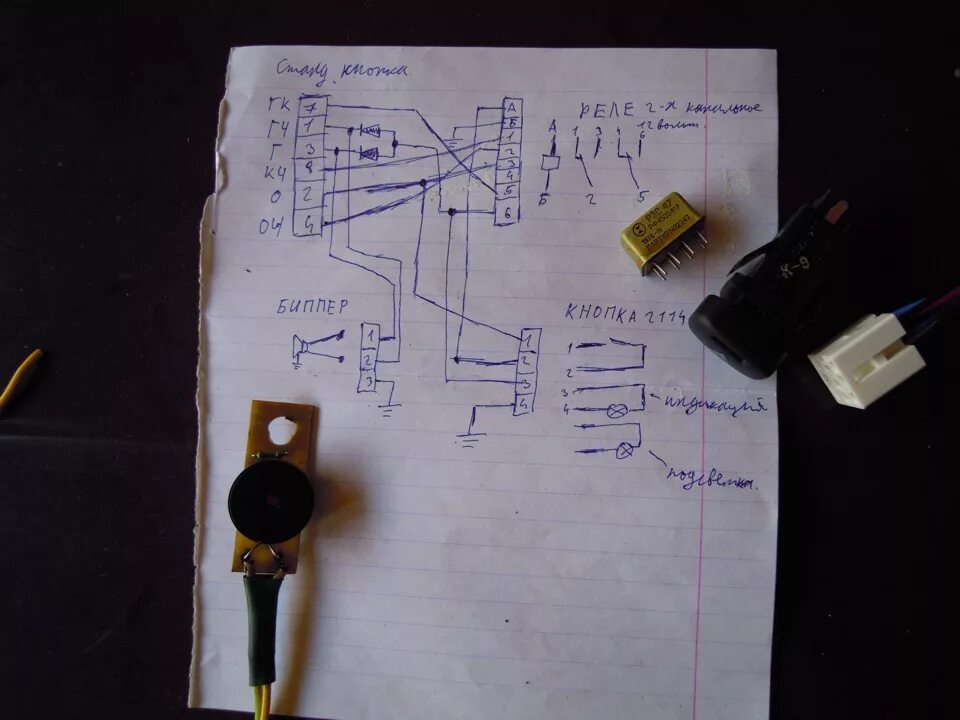 Станд. кнопка.
ГК 7
ГЧ 1
Г 3
КЧ 8
О 2
ОЧ 4
А
Б
1
2
3
4
5
6
РЕЛЕ 2-х канальное
12 вольт.
А 1 3 4 6
Б 2 5
РЭС 47
БИППЕР
1
2
3
1
2
3
4
КНОПКА 2114
1
2
3
4
индикация
подсветка.
К-9